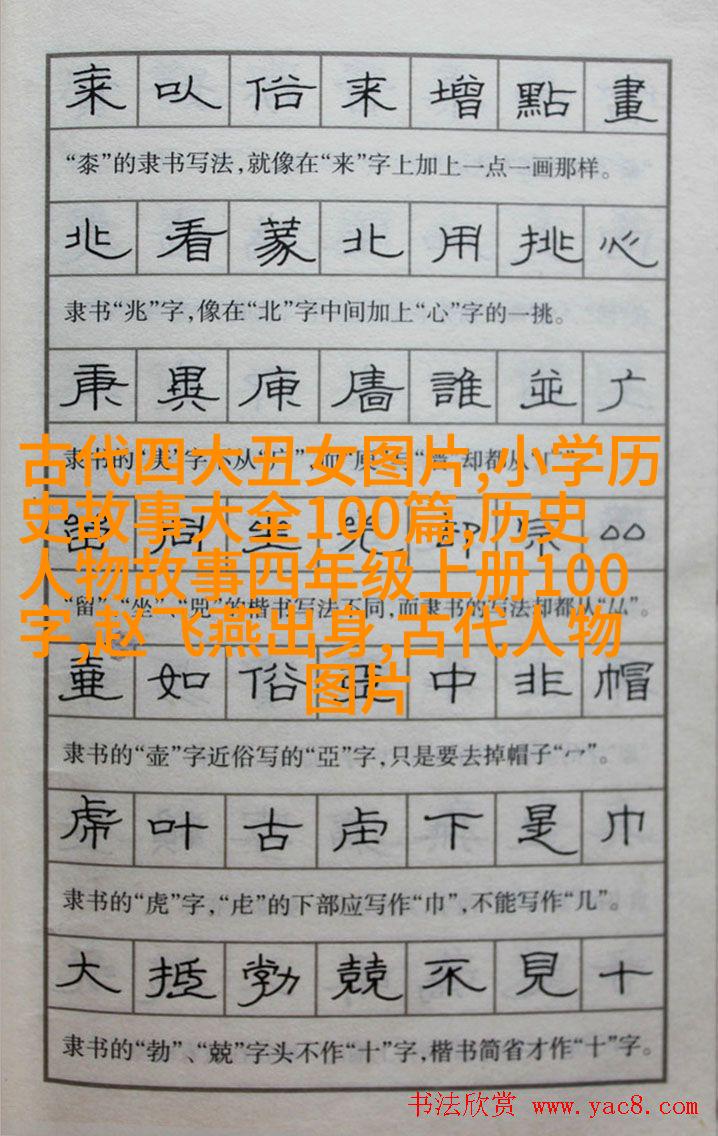 桼以俗来增點畫
“桼”的隶书写法,就像在“来”字上加上一点一画那样。
兆看蒙北用挑心
隶书“兆”字,像在“北”字中间加上“心”字的一挑。
庚異庾廧誰並广
隶书的 字不从“广”,而 却都从
古代四大丑女图片,小学历
史故事大全100篇,历史
人物故事四年级上册100
字,赵飞燕出身,古代人物
图片
留同坐兜部宗厸
“留”、“坐”、“兜”的楷书写法不同,而隶书的写法却都从“厸”。
壷如俗亞中非帽
隶书的“壶”字近俗写的“亞”字,只是要去掉帽子“冖”。
虎叶古虍下是巾
隶书的“虎”字,“虍”的下部应写作“巾”,不能写作“几”。
大抵勃兢不見十
隶书的“勃”、“兢”字头不作“十”字,楷书简省才作“十”字。
书法欣赏 www.yac8.com